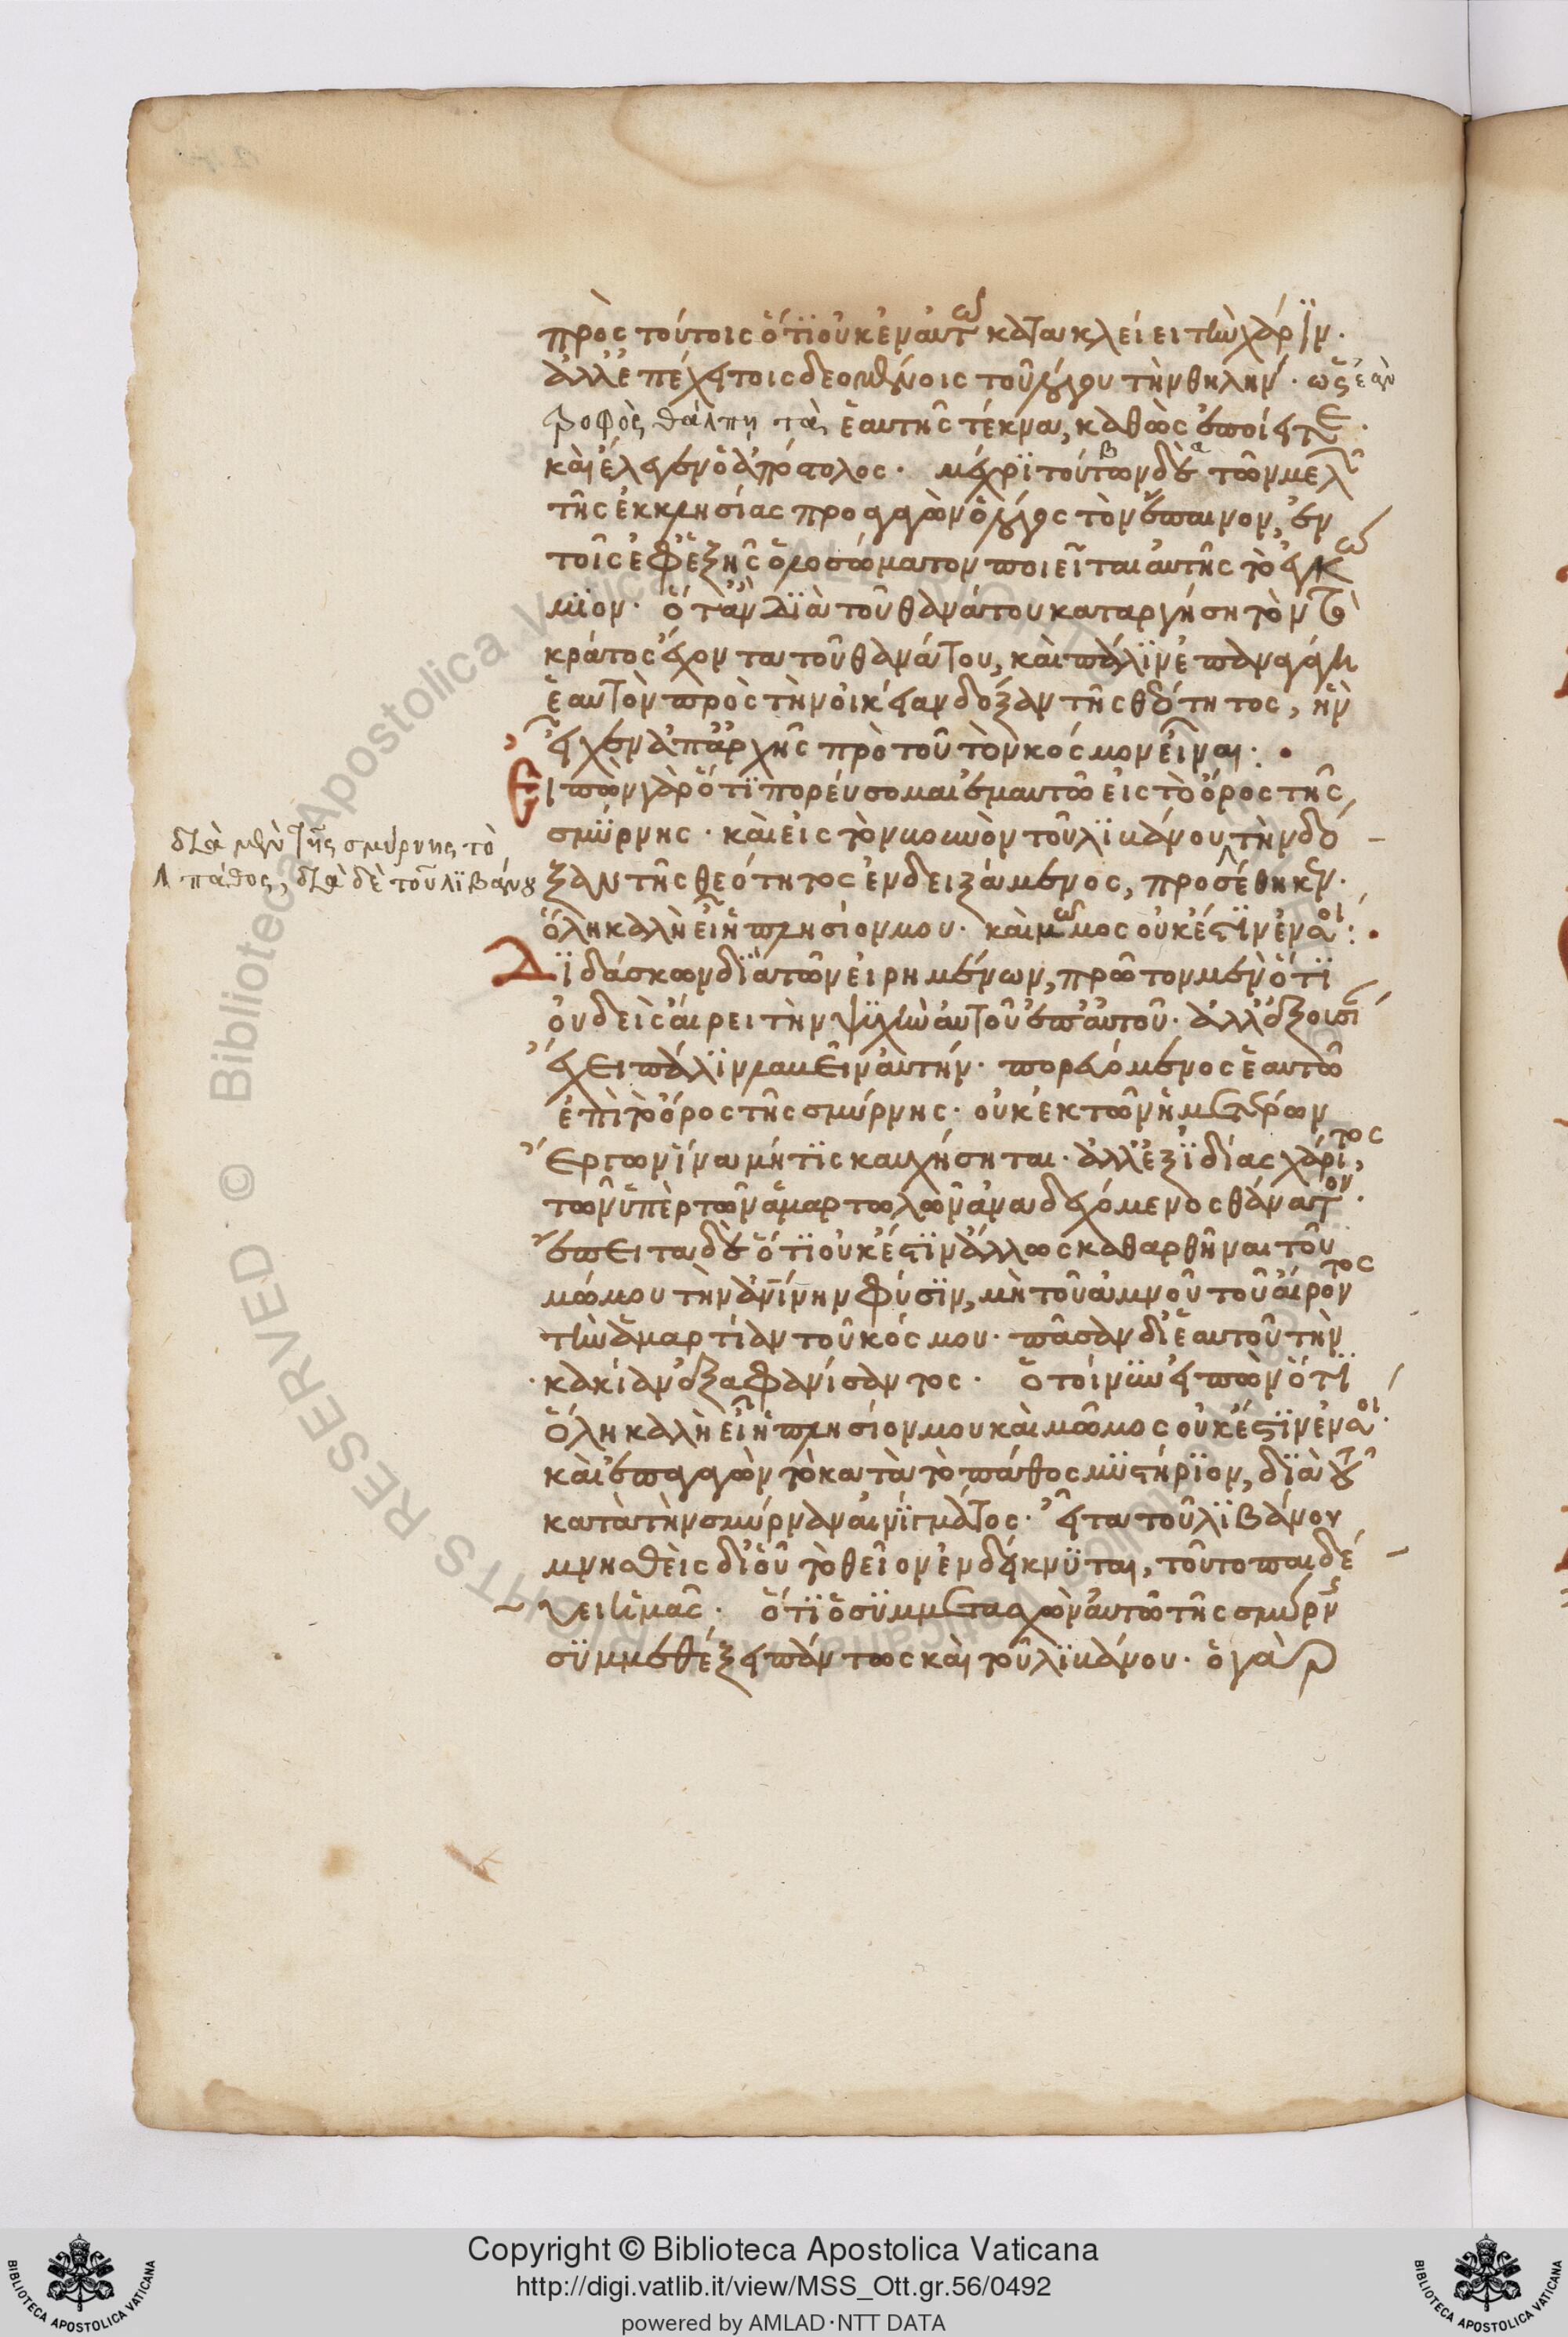 πρὸς τούτοις ὅτι οὐκ ἐν αὐτῷ κατακλείει τὴν χάριν·
ἀλλ' ἐπέχει τοῖς δεομένοις τοῦ λόγου τὴν θηλήν· ὡς ἐὰν
τροφὸς θάλπῃ τὰ ἑαυτῆς τέκνα, καθὼς ἐποίει τε
καὶ ἔλεγεν ὁ ἀπόστολος· μέχρι τούτων δὲ τῶν μελῶν
τῆς ἐκκλησίας προαγαγὼν ὁ λόγος τὸν ἔπαινον, ἐν
τοῖς ἐφεξῆς ὁλοσώματον ποιεῖται αὐτῆς τὸ ἐγκώ
μιον· ὅταν διὰ τοῦ θανάτου καταργήσῃ τὸν τὸ
κράτος ἔχοντα τοῦ θανάτου, καὶ πάλιν ἐπαναγάγῃ
ἑαυτὸν πρὸς τὴν οἰκείαν δόξαν τῆς θεότητος, ἣν
εἶχεν ἀπαρχῆς πρὸ τοῦ τὸν κόσμον εἶναι:
Εἰπὼν γὰρ ὅτι πορεύσομαι ἐμαυτῷ εἰς τὸ ὄρος τῆς
σμύρνης· καὶ εἰς τὸν βουνὸν τοῦ λιβάνου τὴν δό
διὰ μὲν τῆς σμύρνης τὸ
πάθος, διὰ δὲ τοῦ λιβάνου
ξαν τῆς θεότητος ἐνδειξάμενος, προσέθηκεν·
ὅλη καλὴ εἶ ἡ πλησίον μου· καὶ μῶμος οὐκ ἔστιν ἐν σοί:
Διδάσκων διὰ τῶν εἰρημένων, πρῶτον μὲν ὅτι
οὐδεὶς αἴρει τὴν ψυχὴν αὐτοῦ ἀπ' αὐτοῦ· ἀλλ' ἐξουσί
ἔχει πάλιν λαβεῖν αὐτήν· πορευόμενος ἑαυτῷ
ἐπὶ τὸ ὄρος τῆς σμύρνης· οὐκ ἐκ τῶν ἡμετέρων
ἔργων ἵνα μή τις καυχήσηται· ἀλλ' ἐξ ἰδίας χάριτος,
τῶν ὑπὲρ τῶν ἁμαρτωλῶν ἀναδεχόμενος θάνατον·
ἔπειτα δὲ ὅτι οὐκ ἔστιν ἄλλως καθαρθῆναι τοῦ
μώμου τὴν ἀνίνην φύσιν, μὴ τοῦ ἀμνοῦ τοῦ αἴροντος
τὴν ἁμαρτίαν τοῦ κόσμου· πᾶσαν δι' ἑαυτοῦ τὴν
κακίαν ἐξαφανίσαντος· ὁ τοίνυν εἰπὼν ὅτι
ὅλη καλὴ εἶ ἡ πλησίον μου καὶ μῶμος οὐκ ἔστιν ἐν σοί·
καὶ ἐπαγαγὼν τὸ κατὰ τὸ πάθος μυστήριον, διὰ τοῦ
κατὰ τὴν σμύρναν αἰνίγματος· εἶτα τοῦ λιβάνου
μνησθεὶς δι' οὗ τὸ θεῖον ἐνδείκνυται, τοῦτο παιδε
ύει ἡμᾶς· ὅτι ὁ συμμετασχὼν αὐτῷ τῆς σμύρνης
συμμεθέξει πάντως καὶ τοῦ λιβάνου· ὁ γὰρ
Copyright © Biblioteca Apostolica Vaticana
http://digi.vatlib.it/view/MSS_Ott.gr.56/0492
powered by AMLAD·NTT DATA